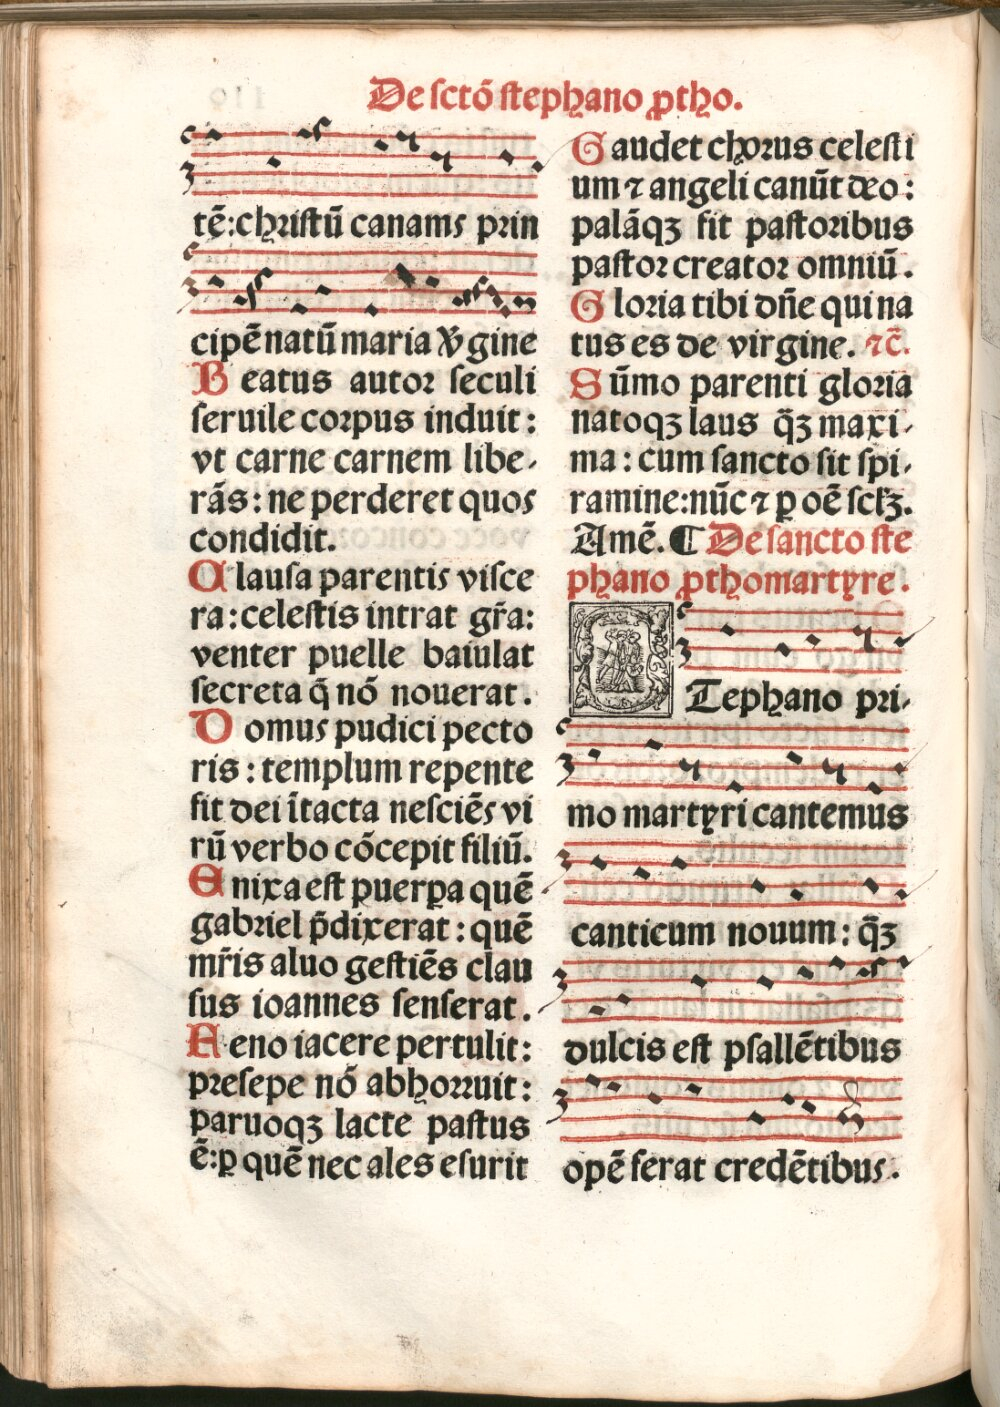 De sctō stephano ꝓtho.
tē:christū canamꝰ prin
cipē natū maria ꝟgine
Beatus autor seculi
seruile corpus induit:
vt carne carnem libe-
rās: ne perderet quos
condidit.
Clausa parentis visce
ra: celestis intrat gr̄a:
venter puelle baiulat
secreta q̄ nō nouerat.
Domus pudici pecto
ris: templum repente
fit dei ītacta nesciēs vi
rū verbo cōcepit filiū.
Enixa est puerꝑa quē
gabriel p̄dixerat: quē
mr̄is aluo gestiēs clau
sus ioannes senserat.
Feno iacere pertulit:
presepe nō abhorruit:
paruoqꝫ lacte pastus
ē:ꝑ quē nec ales esurit
Gaudet chorus celesti
um ⁊ angeli canūt deo:
palāqꝫ fit pastoribus
pastor creator omniū.
Gloria tibi dn̄e qui na
tus es de virgine. ⁊c̄.
Sūmo parenti gloria
natoqꝫ laus q̄ꝫ maxi-
ma: cum sancto sit spi-
ramine:nūc ⁊ ꝑ oē sclꝫ.
Amē. ¶ De sancto ste
phano ꝓthomartyre.
STephano pri-
mo martyri cantemus
canticum nouum: q̄ꝫ
dulcis est psallētibus
opē ferat credētibus.